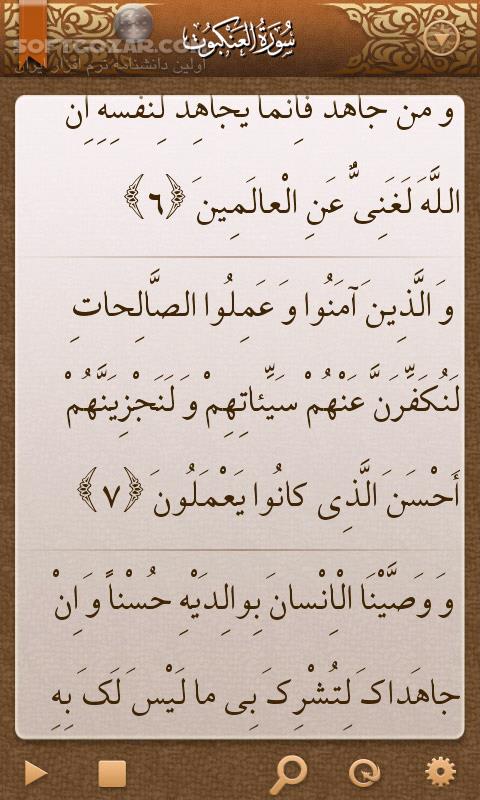 SOFTGOZAR.COM
اولین دانشنامه نرم افزار ایران
سُورَةُ العَنكَبُوت
وَ مَن جاهَدَ فَإِنَّما يُجاهِدُ لِنَفْسِهِ إِنَّ
اللَّهَ لَغَنِیٌّ عَنِ الْعالَمِينَ ﴿٦﴾
وَ الَّذِينَ آمَنُوا وَ عَمِلُوا الصَّالِحاتِ
لَنُكَفِّرَنَّ عَنْهُمْ سَيِّئاتِهِمْ وَ لَنَجْزِيَنَّهُمْ
أَحْسَنَ الَّذِی كانُوا يَعْمَلُونَ ﴿٧﴾
وَ وَصَّيْنَا الْإِنْسانَ بِوالِدَيْهِ حُسْناً وَ إِنْ
جاهَداکَ لِتُشْرِکَ بِی ما لَيْسَ لَکَ بِهِ